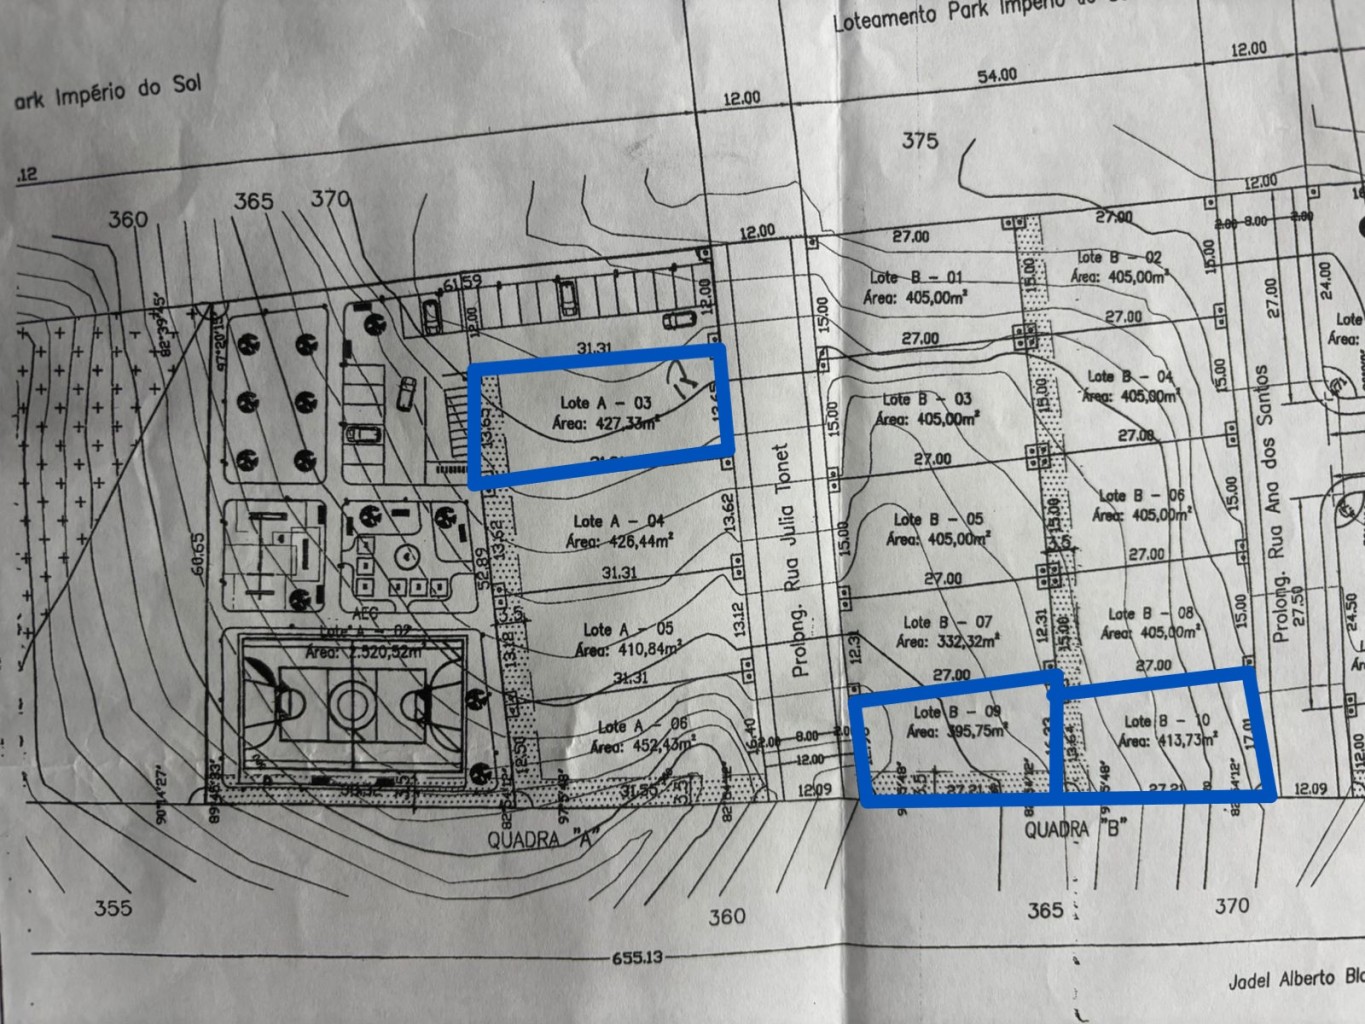 Loteamento Park Império
ark Império do Sol
12.00
54.00
12.00
.12
375
360
365
370
12.00
12.00
27.00
27.00
2.00 8.00 2.00
Lote B - 01
Área: 405,00m²
Lote B - 02
Área: 405,00m²
15.00
15.00
15.00
27.00
24.00
61.59
12.00
12.00
82°39'25"
97°20'
31.31
27.00
27.00
Lote A - 03
Área: 427,33m²
13.65
Lote B - 03
Área: 405,00m²
Lote B - 04
Área: 405,00m²
15.00
15.00
15.00
Lote
Área:
27.00
27.00
Lote A - 04
Área: 426,44m²
13.62
13.62
Lote B - 05
Área: 405,00m²
Lote B - 06
Área: 405,00m²
15.00
15.00
15.00
Prolong. Rua Julia Tonet
Prolong. Rua Ana dos Santos
60.65
52.89
31.31
27.00
27.00
27.50
24.50
AEC
Lote A - 02
Área: 2.520,52m²
Lote A - 05
Área: 410,84m²
13.12
13.12
Lote B - 07
Área: 332,32m²
12.31
12.31
Lote B - 08
Área: 405,00m²
15.00
15.00
31.31
27.00
27.00
Lote A - 06
Área: 452,43m²
12.50
16.40
12.00 8.00 2.0
12.00
Lote B - 09
Área: 395,75m²
Lote B - 10
Área: 413,73m²
13.64
17.01
12.00
90°14'27"
3.5
3.5
97°5'48"
82°54'12"
12.09
27.21
27.21
12.09
QUADRA "A"
QUADRA "B"
355
360
365
370
655.13
Jadel Alberto